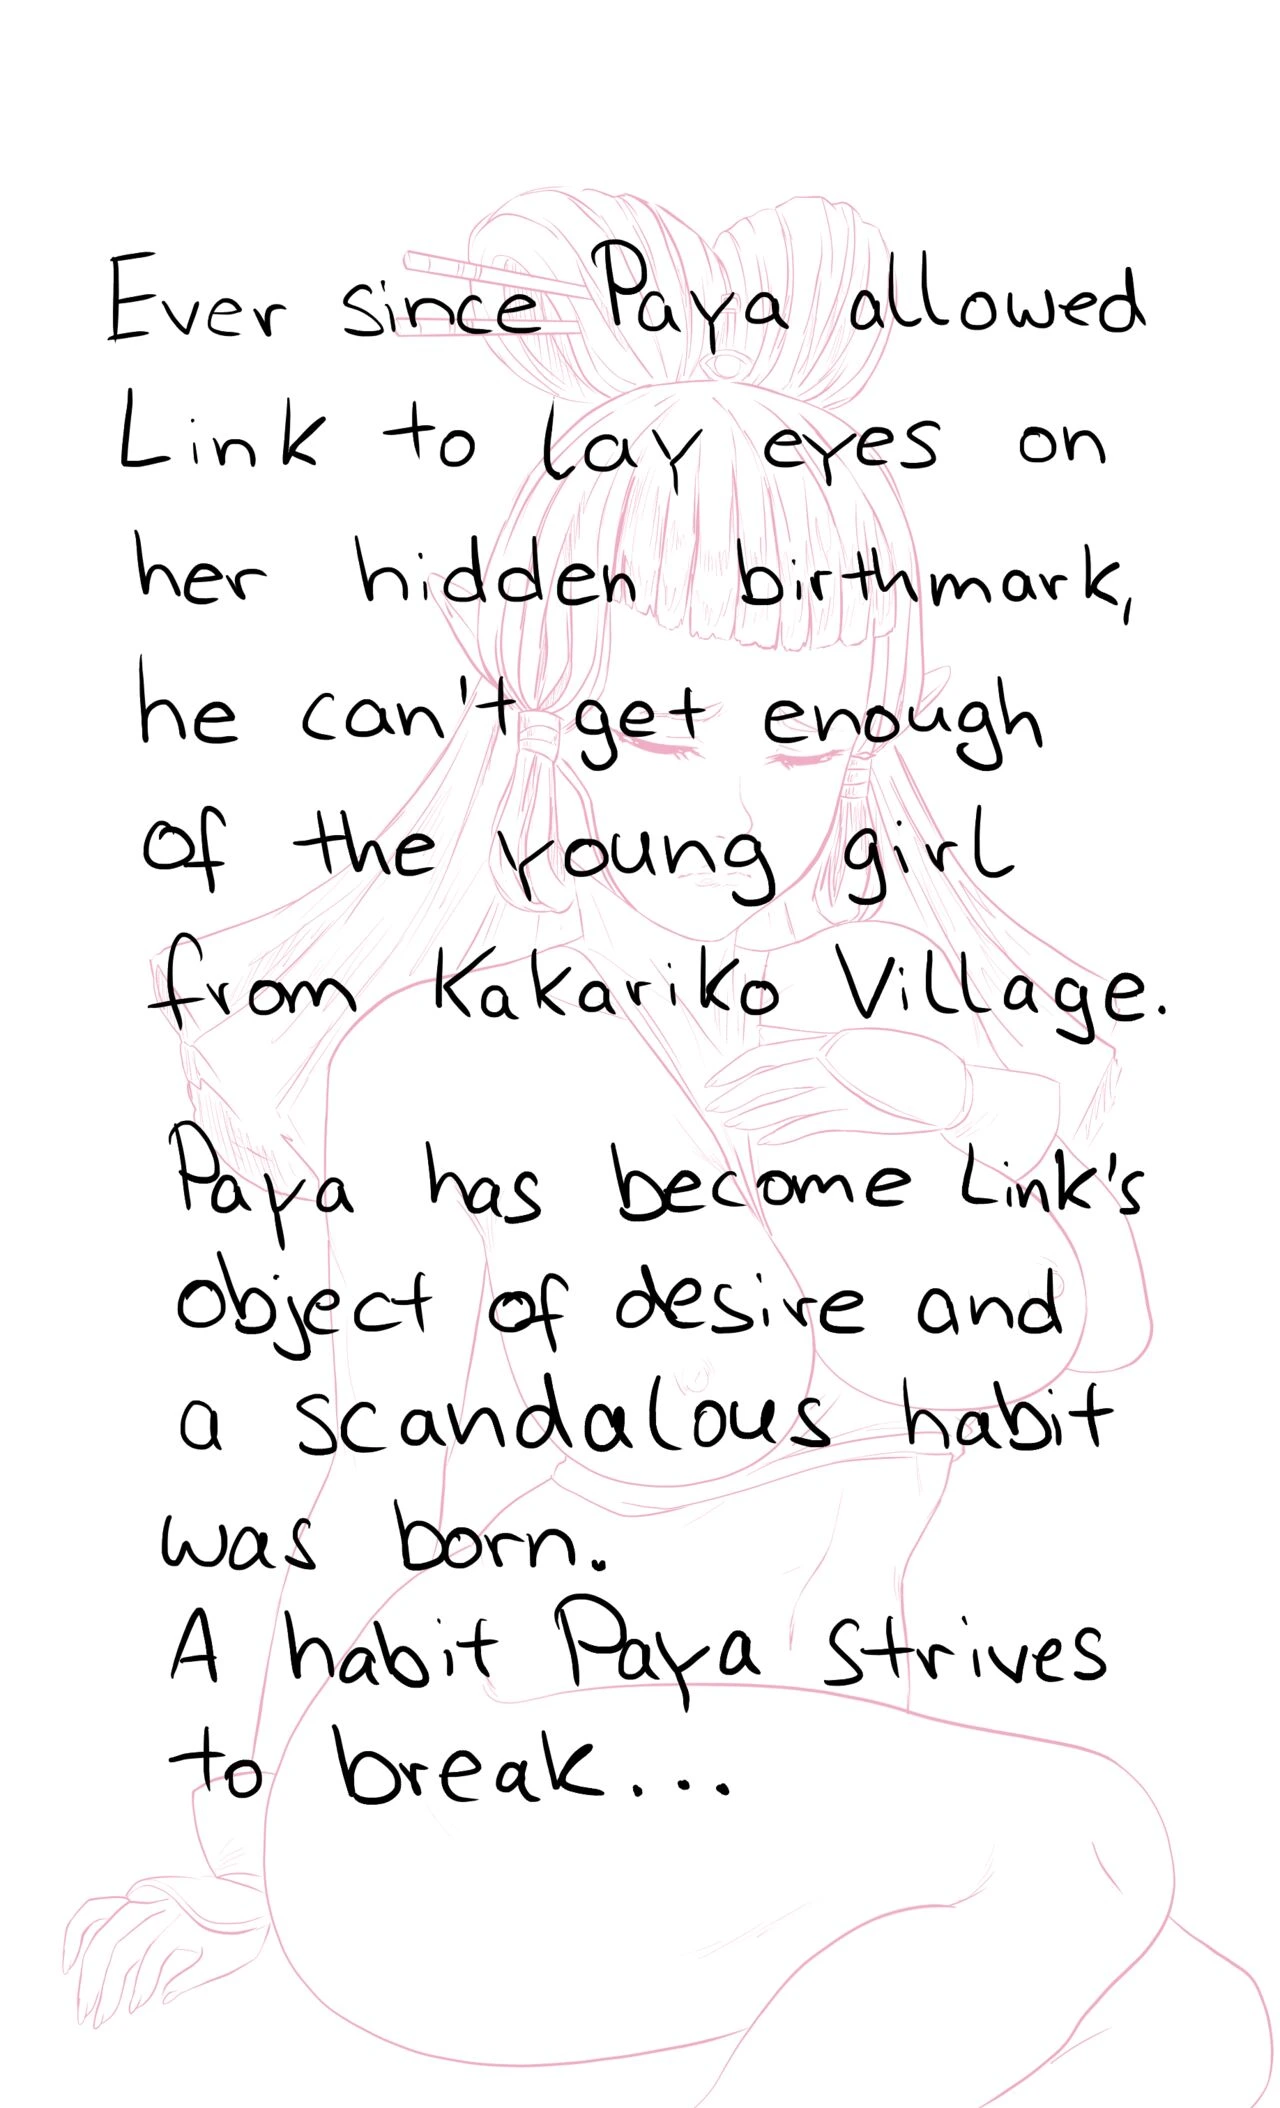 Ever since Paya allowed
Link to lay eyes on
her hidden birthmark,
he can't get enough
of the young girl
from Kakariko Village.
Paya has become Link's
object of desire and
a scandalous habit
was born.
A habit Paya strives
to break...